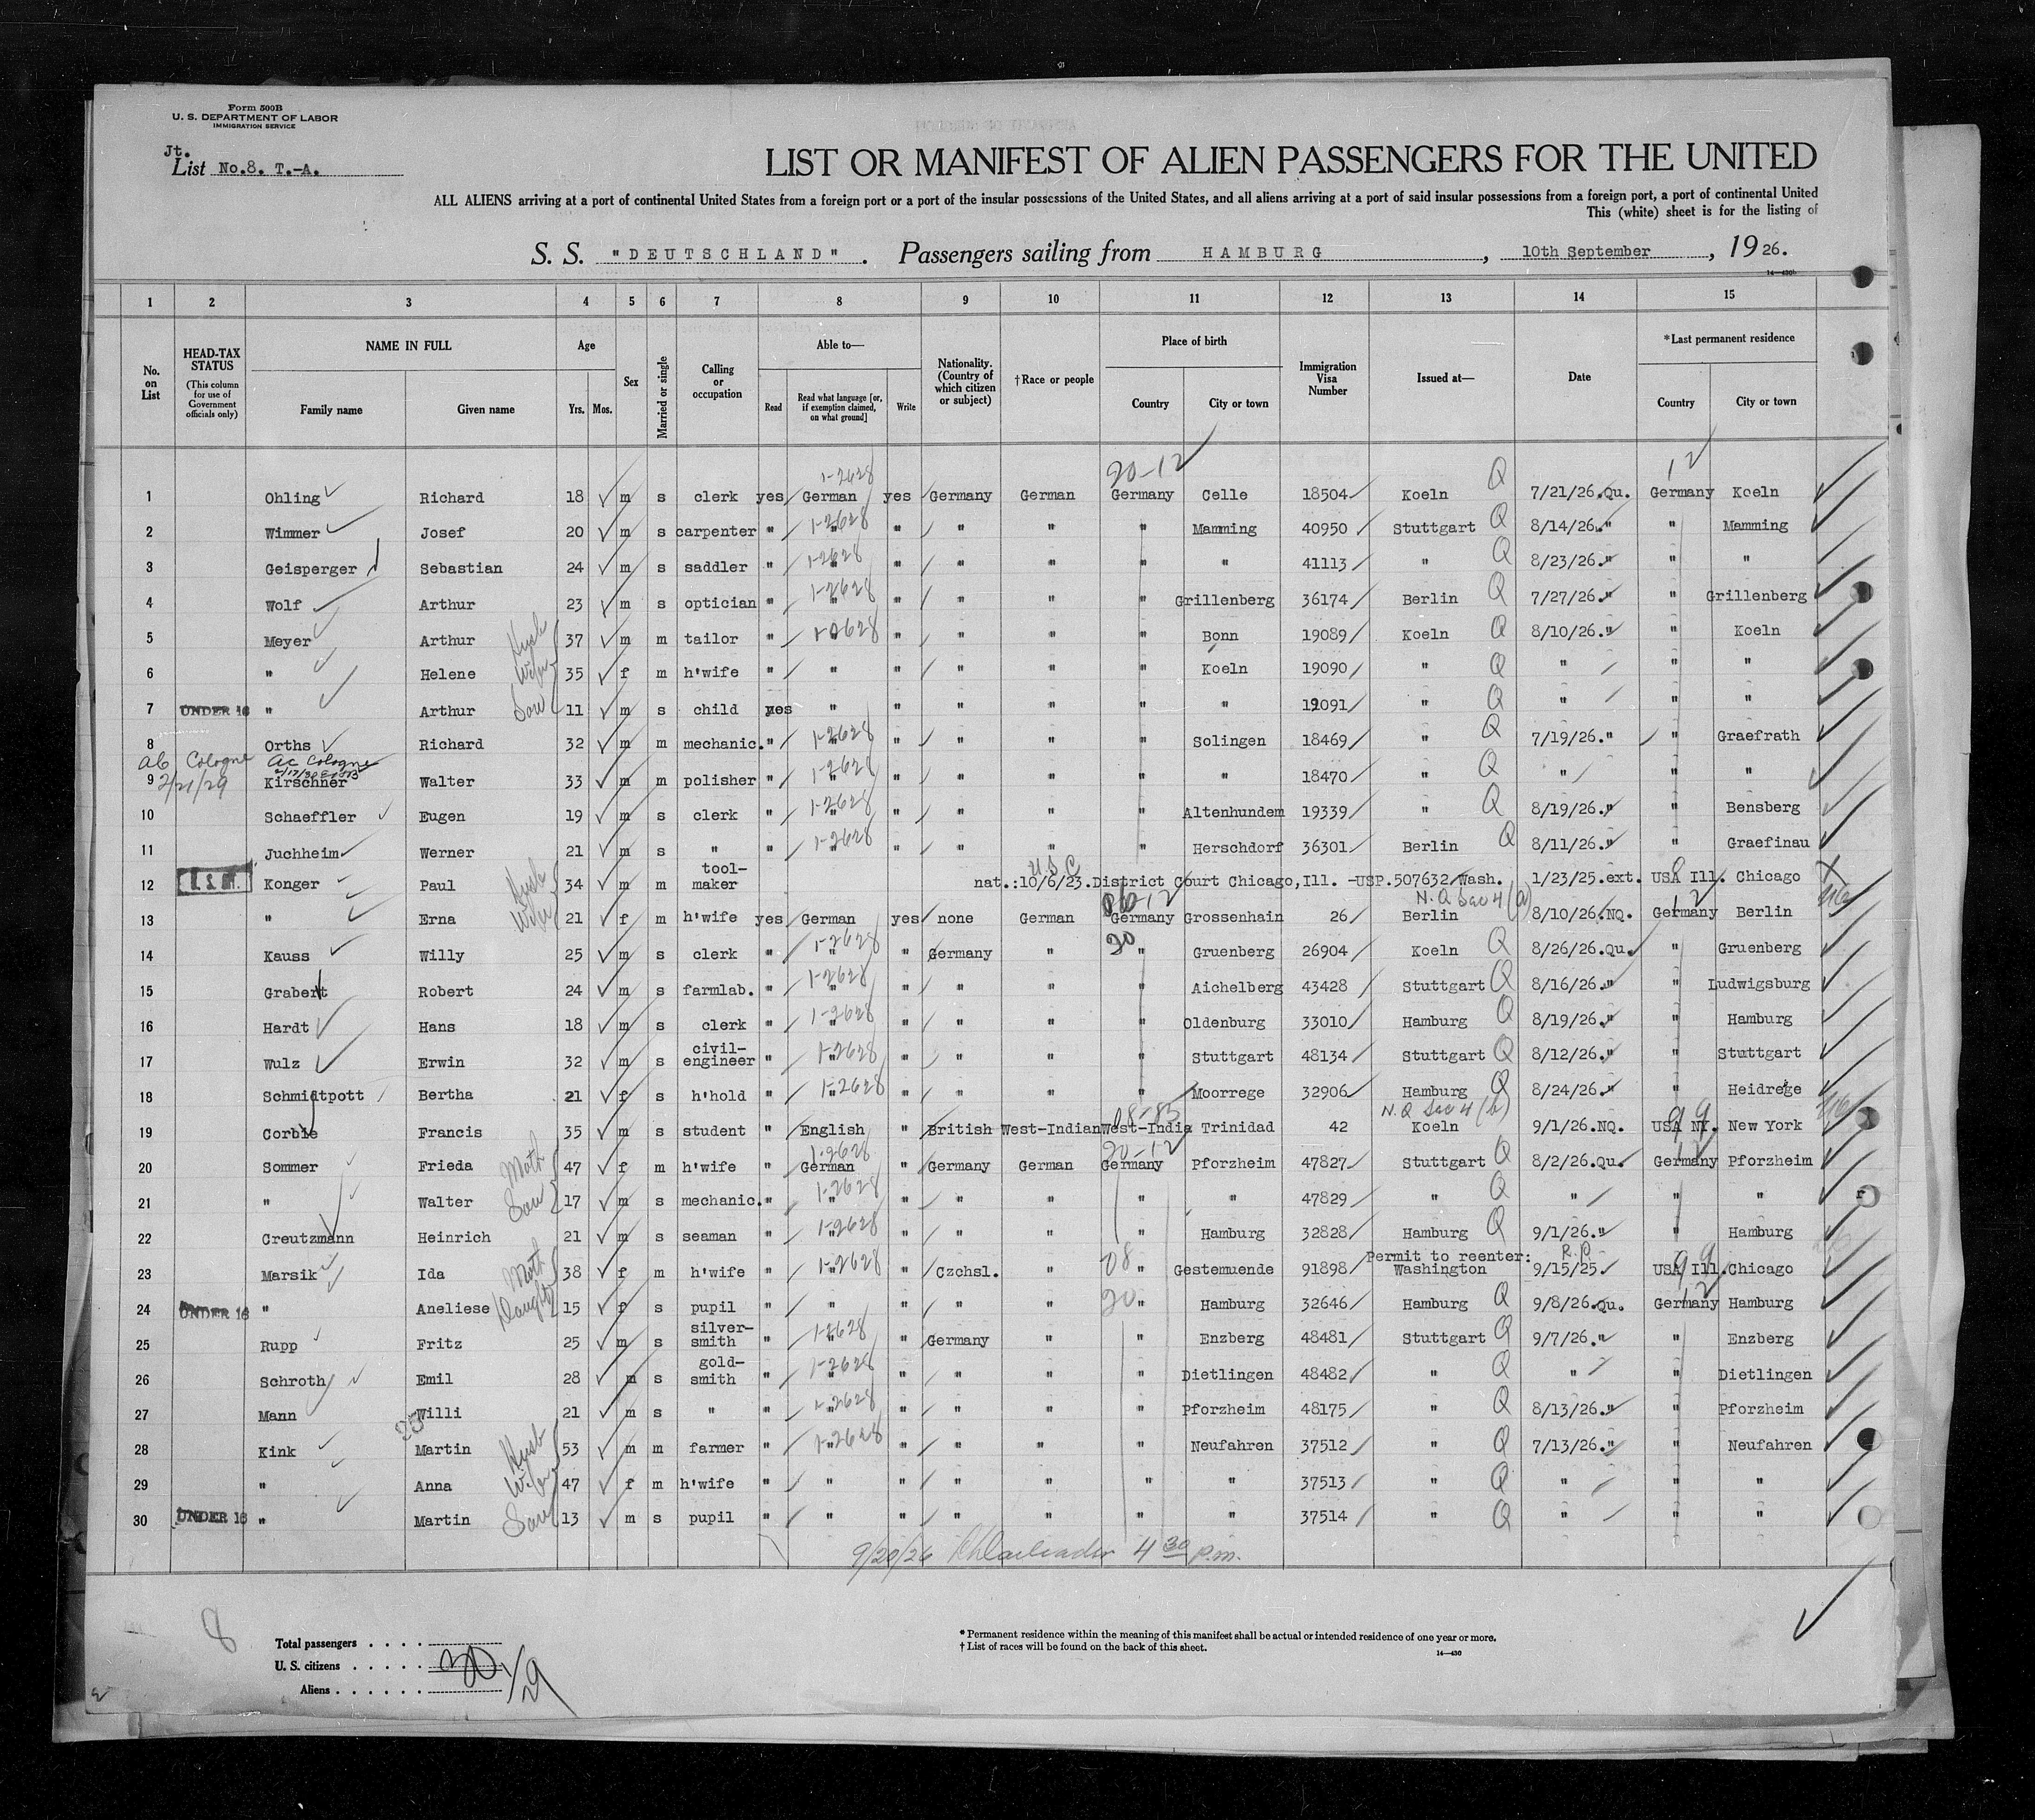 Form 500B
U. S. DEPARTMENT OF LABOR
IMMIGRATION SERVICE
Jt.
List No.8. T.-A.
LIST OR MANIFEST OF ALIEN PASSENGERS FOR THE UNITED
ALL ALIENS arriving at a port of continental United States from a foreign port or a port of the insular possessions of the United States, and all aliens arriving at a port of said insular possessions from a foreign port, a port of continental United
This (white) sheet is for the listing of
S. S. "DEUTSCHLAND" . Passengers sailing from HAMBURG , 10th September , 1926.
14—430b
1 2 3 4 5 6 7 8 9 10 11 12 13 14 15
No. on List
HEAD-TAX STATUS (This column for use of Government officials only)
NAME IN FULL
Family name Given name
Age
Yrs. Mos.
Sex
Married or single
Calling or occupation
Able to—
Read Read what language [or, if exemption claimed, on what ground] Write
Nationality. (Country of which citizen or subject)
†Race or people
Place of birth
Country City or town
Immigration Visa Number
Issued at—
Date
*Last permanent residence
Country City or town
1-2628 20-12 Q 12
1 Ohling Richard 18 m s clerk yes German yes Germany German Germany Celle 18504 Koeln 7/21/26.Qu. Germany Koeln
2 Wimmer Josef 20 m s carpenter " 1-2628 " " " " " Mamming 40950 Stuttgart Q 8/14/26." " Mamming
3 Geisperger Sebastian 24 m s saddler " 1-2628 " " " " " 41113 " Q 8/23/26." " "
4 Wolf Arthur 23 m s optician " 1-2628 " " " " Grillenberg 36174 Berlin Q 7/27/26." " Grillenberg
5 Meyer Arthur Husb 37 m m tailor " 1-2628 " " " " Bonn 19089 Koeln Q 8/10/26." " Koeln
6 " Helene Wife 35 f m h'wife " " " " " " Koeln 19090 " Q " " "
7 UNDER 16 " Arthur Son 11 m s child yes " " " " " " 19091 " Q " " "
8 Orths Richard 32 m m mechanic. " 1-2628 " " " " Solingen 18469 " Q 7/19/26." " Graefrath
ab Cologne ac Cologne
9 2/21/29 Kirschner Walter 33 m m polisher " 1-2628 " " " " " 18470 " Q " " "
10 Schaeffler Eugen 19 m s clerk " 1-2628 " " " " Altenhundem 19339 " Q 8/19/26." " Bensberg
11 Juchheim Werner 21 m s " " 1-2628 " " " " Herschdorf 36301 Berlin Q 8/11/26." " Graefinau
12 Konger Paul Husb 34 m m tool-maker U.S.C nat.:10/6/23.District Court Chicago,Ill. -USP.507632 Wash. 1/23/25.ext. USA Ill. Chicago
N.Q Sec 4 (a)
13 " Erna Wife 21 f m h'wife yes German yes none German Germany Grossenhain 26 Berlin 8/10/26.NQ. Germany Berlin
14 Kauss Willy 25 m s clerk " 1-2628 " Germany " 20 " Gruenberg 26904 Koeln Q 8/26/26.Qu. " Gruenberg
15 Grabert Robert 24 m s farmlab. " 1-2628 " " " " Aichelberg 43428 Stuttgart Q 8/16/26." " Ludwigsburg
16 Hardt Hans 18 m s clerk " 1-2628 " " " " Oldenburg 33010 Hamburg Q 8/19/26." " Hamburg
17 Wulz Erwin 32 m s civil-engineer " 1-2628 " " " " Stuttgart 48134 Stuttgart Q 8/12/26." " Stuttgart
18 Schmidtpott Bertha 21 f s h'hold " 1-2628 " " " " Moorrege 32906 Hamburg Q 8/24/26." " Heidrege
08-83 N.Q Sec 4 (b) 99
19 Corbie Francis 35 m s student " English " British West-Indian West-India Trinidad 42 Koeln 9/1/26.NQ. USA NY. New York
1-2628 20-12 12
20 Sommer Frieda Moth 47 f m h'wife " German " Germany German Germany Pforzheim 47827 Stuttgart Q 8/2/26.Qu. Germany Pforzheim
21 " Walter Son 17 m s mechanic. " 1-2628 " " " " " 47829 " Q " " "
22 Creutzmann Heinrich 21 m s seaman " 1-2628 " " " " Hamburg 32828 Hamburg Q 9/1/26." " Hamburg
Permit to reenter: R.P. 99
23 Marsik Ida Moth 38 f m h'wife " 1-2628 " Czchsl. " 08 " Gestemuende 91898 Washington 9/15/25 USA Ill. Chicago
24 UNDER 16 " Aneliese Daught 15 f s pupil " " " " " 20 " Hamburg 32646 Hamburg Q 9/8/26.Qu. Germany 12 Hamburg
25 Rupp Fritz 25 m s silver-smith " 1-2628 " Germany " " Enzberg 48481 Stuttgart Q 9/7/26." " Enzberg
26 Schroth Emil 28 m s gold-smith " 1-2628 " " " " Dietlingen 48482 " Q " " Dietlingen
27 Mann Willi 21 m s " " 1-2628 " " " " Pforzheim 48175 " Q 8/13/26." " Pforzheim
28 Kink 25 Martin Husb 53 m m farmer " 1-2628 " " " " Neufahren 37512 " Q 7/13/26." " Neufahren
29 " Anna Wife 47 f m h'wife " " " " " " " 37513 " Q " " "
30 UNDER 16 " Martin Son 13 m s pupil " " " " " " " 37514 " Q " " "
9/20/26 4 30 p.m.
8
Total passengers . . . .
U. S. citizens . . . . . 30 1/29
Aliens . . . . . .
* Permanent residence within the meaning of this manifest shall be actual or intended residence of one year or more.
† List of races will be found on the back of this sheet.
14—430